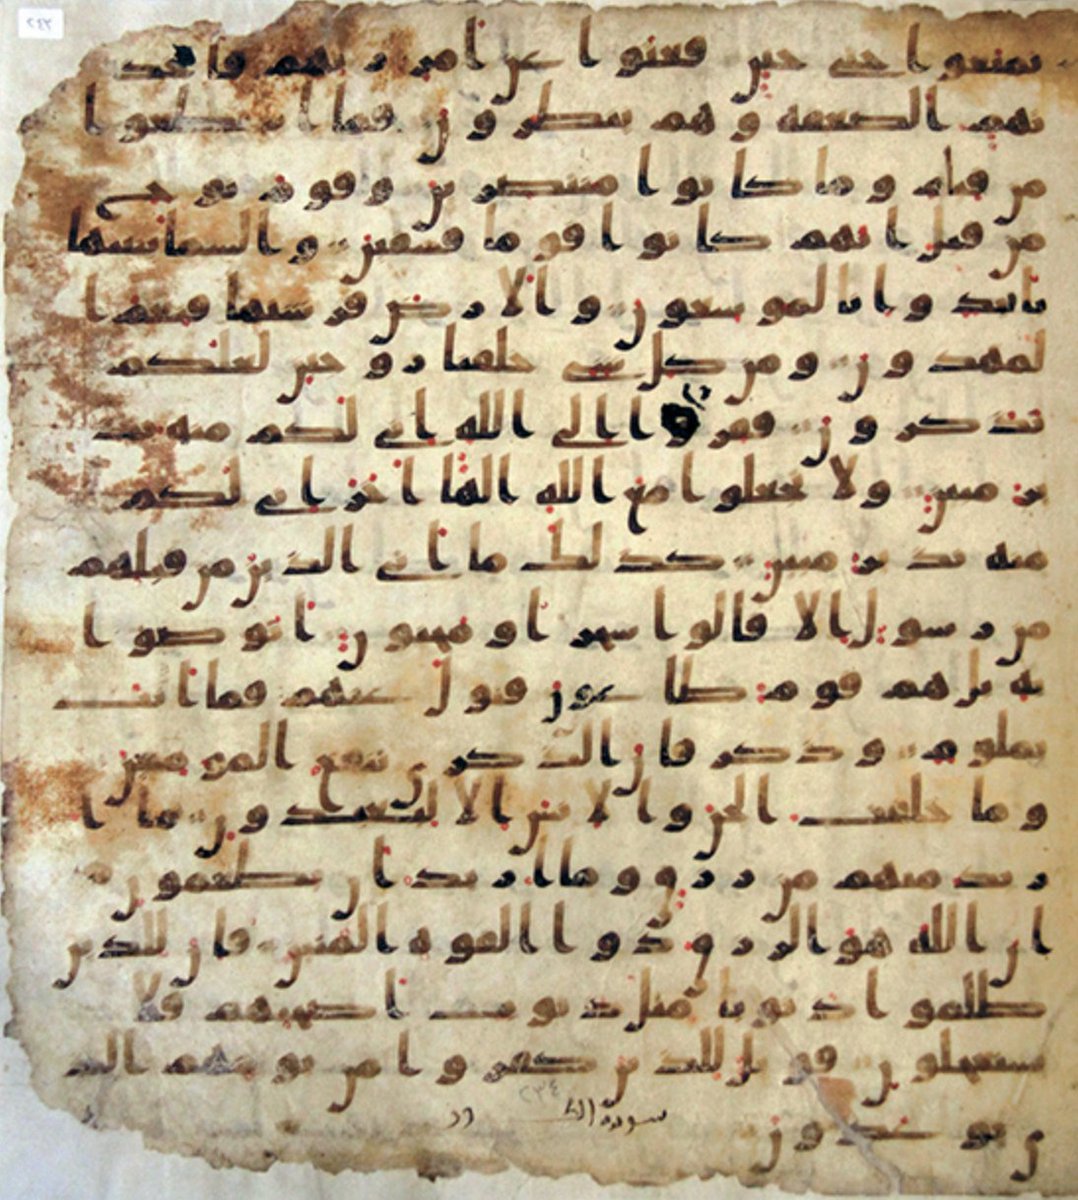 ٢٤٢
تمتعوا حتى حين فعتوا عن امر ربهم فاخذ
تهم الصعقة وهم ينظرون فما استطعوا
من قيام وما كانوا منتصرين وقوم نوح
من قبل انهم كانوا قوما فسقين والسما بنينها
باييد وانا لموسعون والارض فرشنها فنعم ا
لمهدون ومن كل شي خلقنا زوجين لعلكم
تذكرون ففروا الى الله اني لكم منه نذ
ير مبين ولا تجعلوا مع الله الها اخر اني لكم
منه نذير مبين كذلك ما اتى الذين من قبلهم
من رسول الا قالوا سحر او مجنون اتوصوا
به بل هم قوم طاغون فتول عنهم فما انت
بملوم وذكر فان الذكرى تنفع المومنين
وما خلقت الجن والانس الا ليعبدون ما ا
ريد منهم من رزق وما اريد ان يطعمون
ان الله هو الرزق ذوا القوة المتين فان للذين
ظلموا ذنوبا مثل ذنوب اصحبهم فلا
يستعجلون فويل للذين كفروا من يومهم الذ
٢٣٤
سورة الطور
ي يوعدون